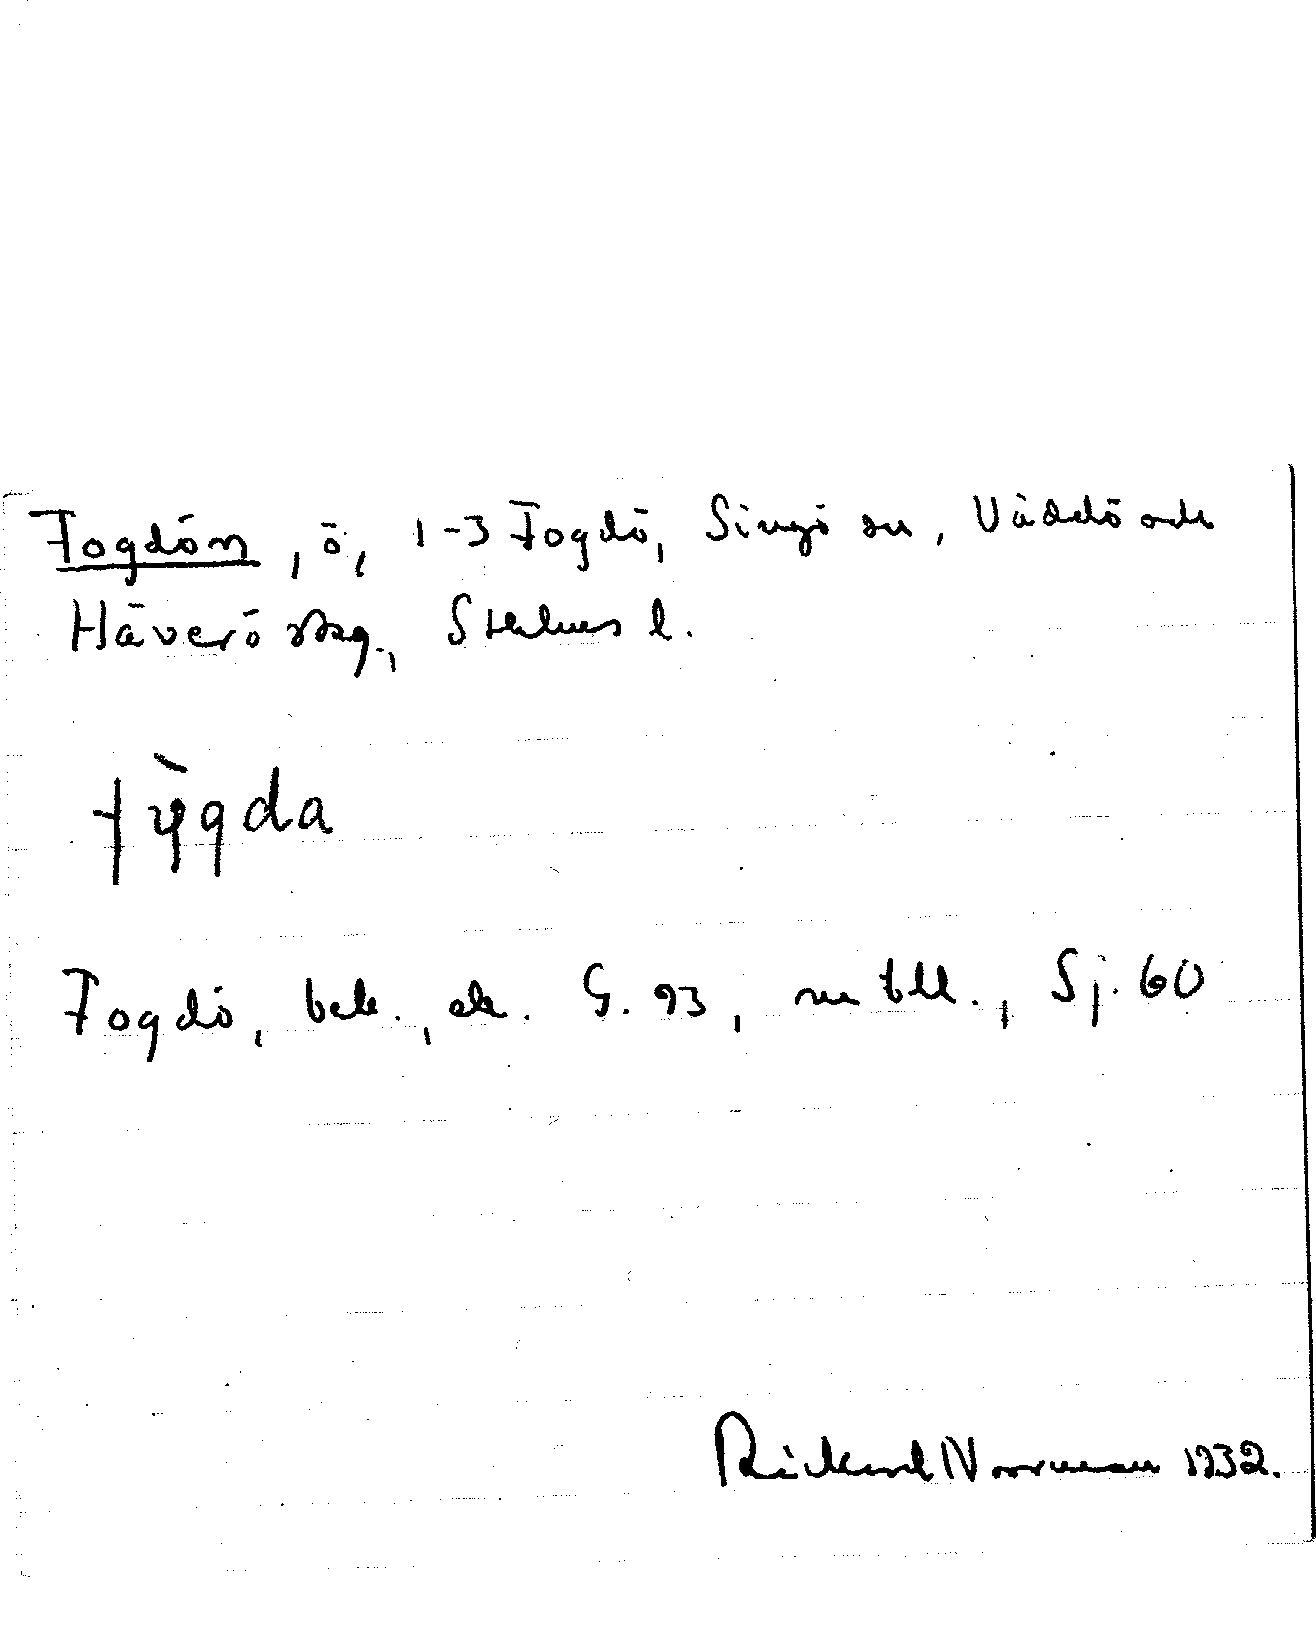 Fogdön, ö, 1-3 Fogdö, Singö sn, Väddö och
Häverö skg., Sthlms l.
Fogdö, bek., ek. G. 93, m bll., Sj. 60
Rickard Norrman 1932.